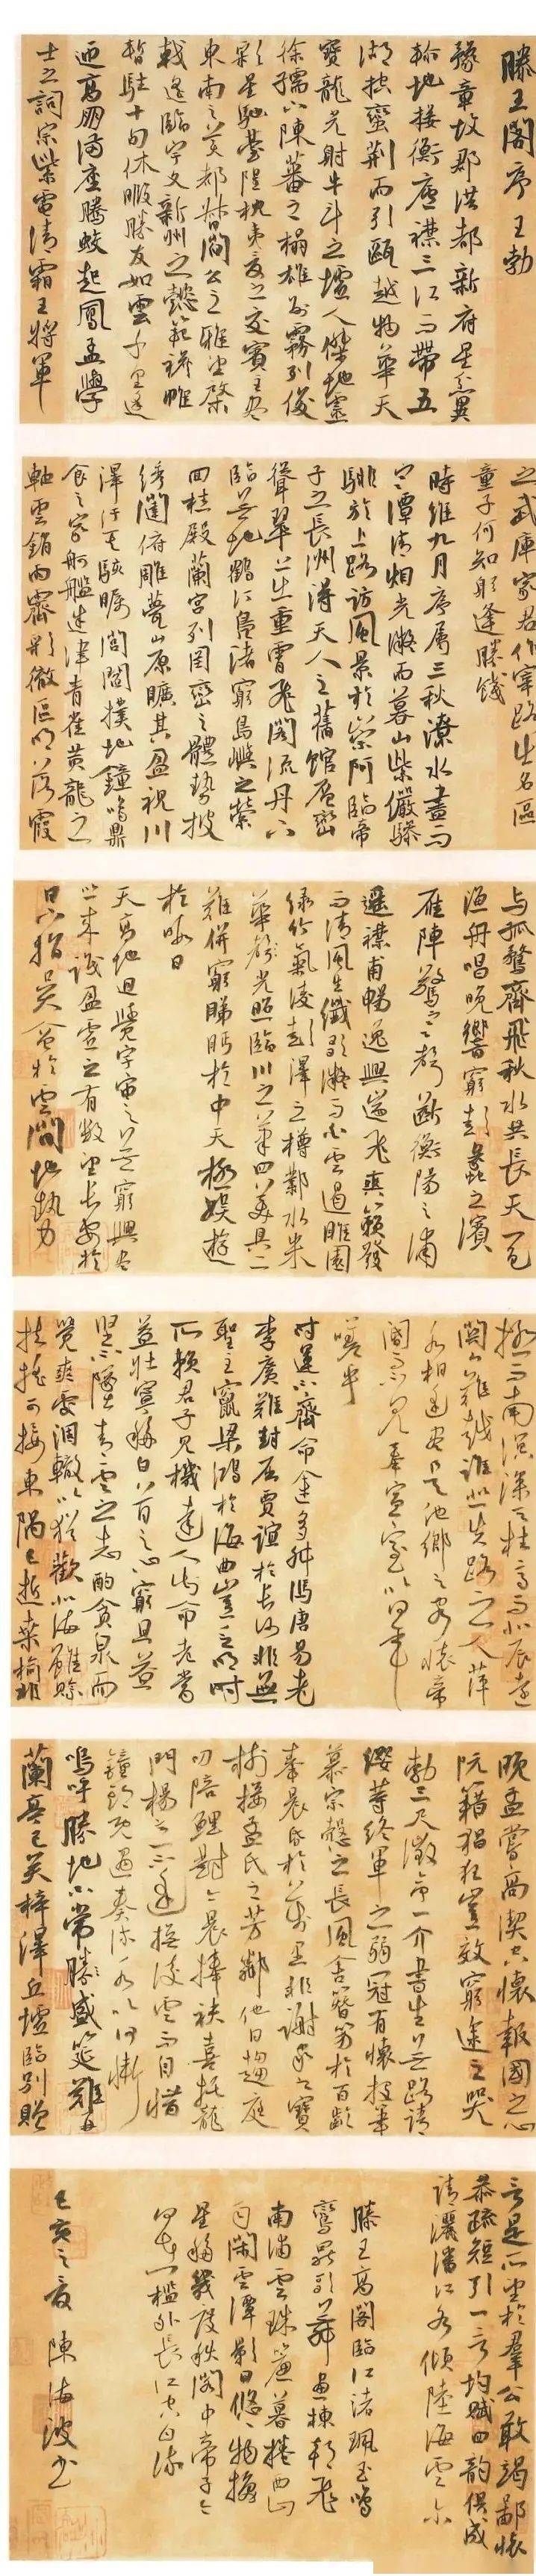 滕王閣序 王勃
豫章故郡洪都新府星分翼
軫地接衡廬襟三江而帶五
湖控蠻荊而引甌越物華天
寶龍光射牛斗之墟人傑地靈
徐孺下陳蕃之榻雄州霧列俊
彩星馳臺隍枕夷夏之交賓主盡
東南之美都督閻公之雅望棨
戟遙臨宇文新州之懿範襜帷
暫駐十旬休暇勝友如雲千里逢
迎高朋滿座騰蛟起鳳孟學
士之詞宗紫電清霜王將軍
之武庫家君作宰路出名區
童子何知躬逢勝餞
時維九月序屬三秋潦水盡而
寒潭清烟光凝而暮山紫儼驂
騑於上路訪風景於崇阿臨帝
子之長洲得天人之舊館層巒
聳翠上出重霄飛閣流丹下
臨無地鶴汀鳧渚窮島嶼之縈
回桂殿蘭宮列岡巒之體勢披
綉闥俯雕甍山原曠其盈視川
澤紆其駭矚閭閻撲地鐘鳴鼎
食之家舸艦迷津青雀黃龍之
軸雲銷雨霽彩徹區明落霞
與孤鶩齊飛秋水共長天一色
漁舟唱晚響窮彭蠡之濱
雁陣驚寒聲斷衡陽之浦
遥襟甫暢逸興遄飛爽籟發
而清風生纖歌凝而白雲遏睢園
綠竹氣凌彭澤之樽鄴水朱
華光照臨川之筆四美具二
難併窮睇眄於中天極娛遊
於暇日
天高地迥覺宇宙之無窮興盡
悲來識盈虛之有數望長安於
日下指吳會於雲間地勢
極而南溟深天柱高而北辰遠
關山難越誰悲失路之人萍
水相逢盡是他鄉之客懷帝
閽而不見奉宣室以何年
嗟乎
時運不齊命途多舛馮唐易老
李廣難封屈賈誼於長沙非無
聖主竄梁鴻於海曲豈乏明時
所賴君子見機達人知命老當
益壯寧移白首之心窮且益
堅不墜青雲之志酌貪泉而
覺爽處涸轍以猶歡北海雖賒
扶搖可接東隅已逝桑榆非
晚孟嘗高潔空懷報國之心
阮籍猖狂豈效窮途之哭
勃三尺微命一介書生無路請
纓等終軍之弱冠有懷投筆
慕宗愨之長風舍簪笏於百齡
奉晨昏於萬里非謝家之寶
樹接孟氏之芳鄰他日趨庭
叨陪鯉對今晨捧袂喜托龍
門楊意不逢撫凌雲而自惜
鐘期既遇奏流水以何慚
嗚呼勝地不常盛筵難再
蘭亭已矣梓澤丘墟臨別贈
言是所望於羣公敢竭鄙懷
恭疏短引一言均賦四韻俱成
請灑潘江各傾陸海雲爾
滕王高閣臨江渚珮玉鳴
鸞罷歌舞畫棟朝飛
南浦雲珠簾暮捲西山
雨閑雲潭影日悠悠物換
星移幾度秋閣中帝子今
何在檻外長江空自流
己亥之夏 陳海波書